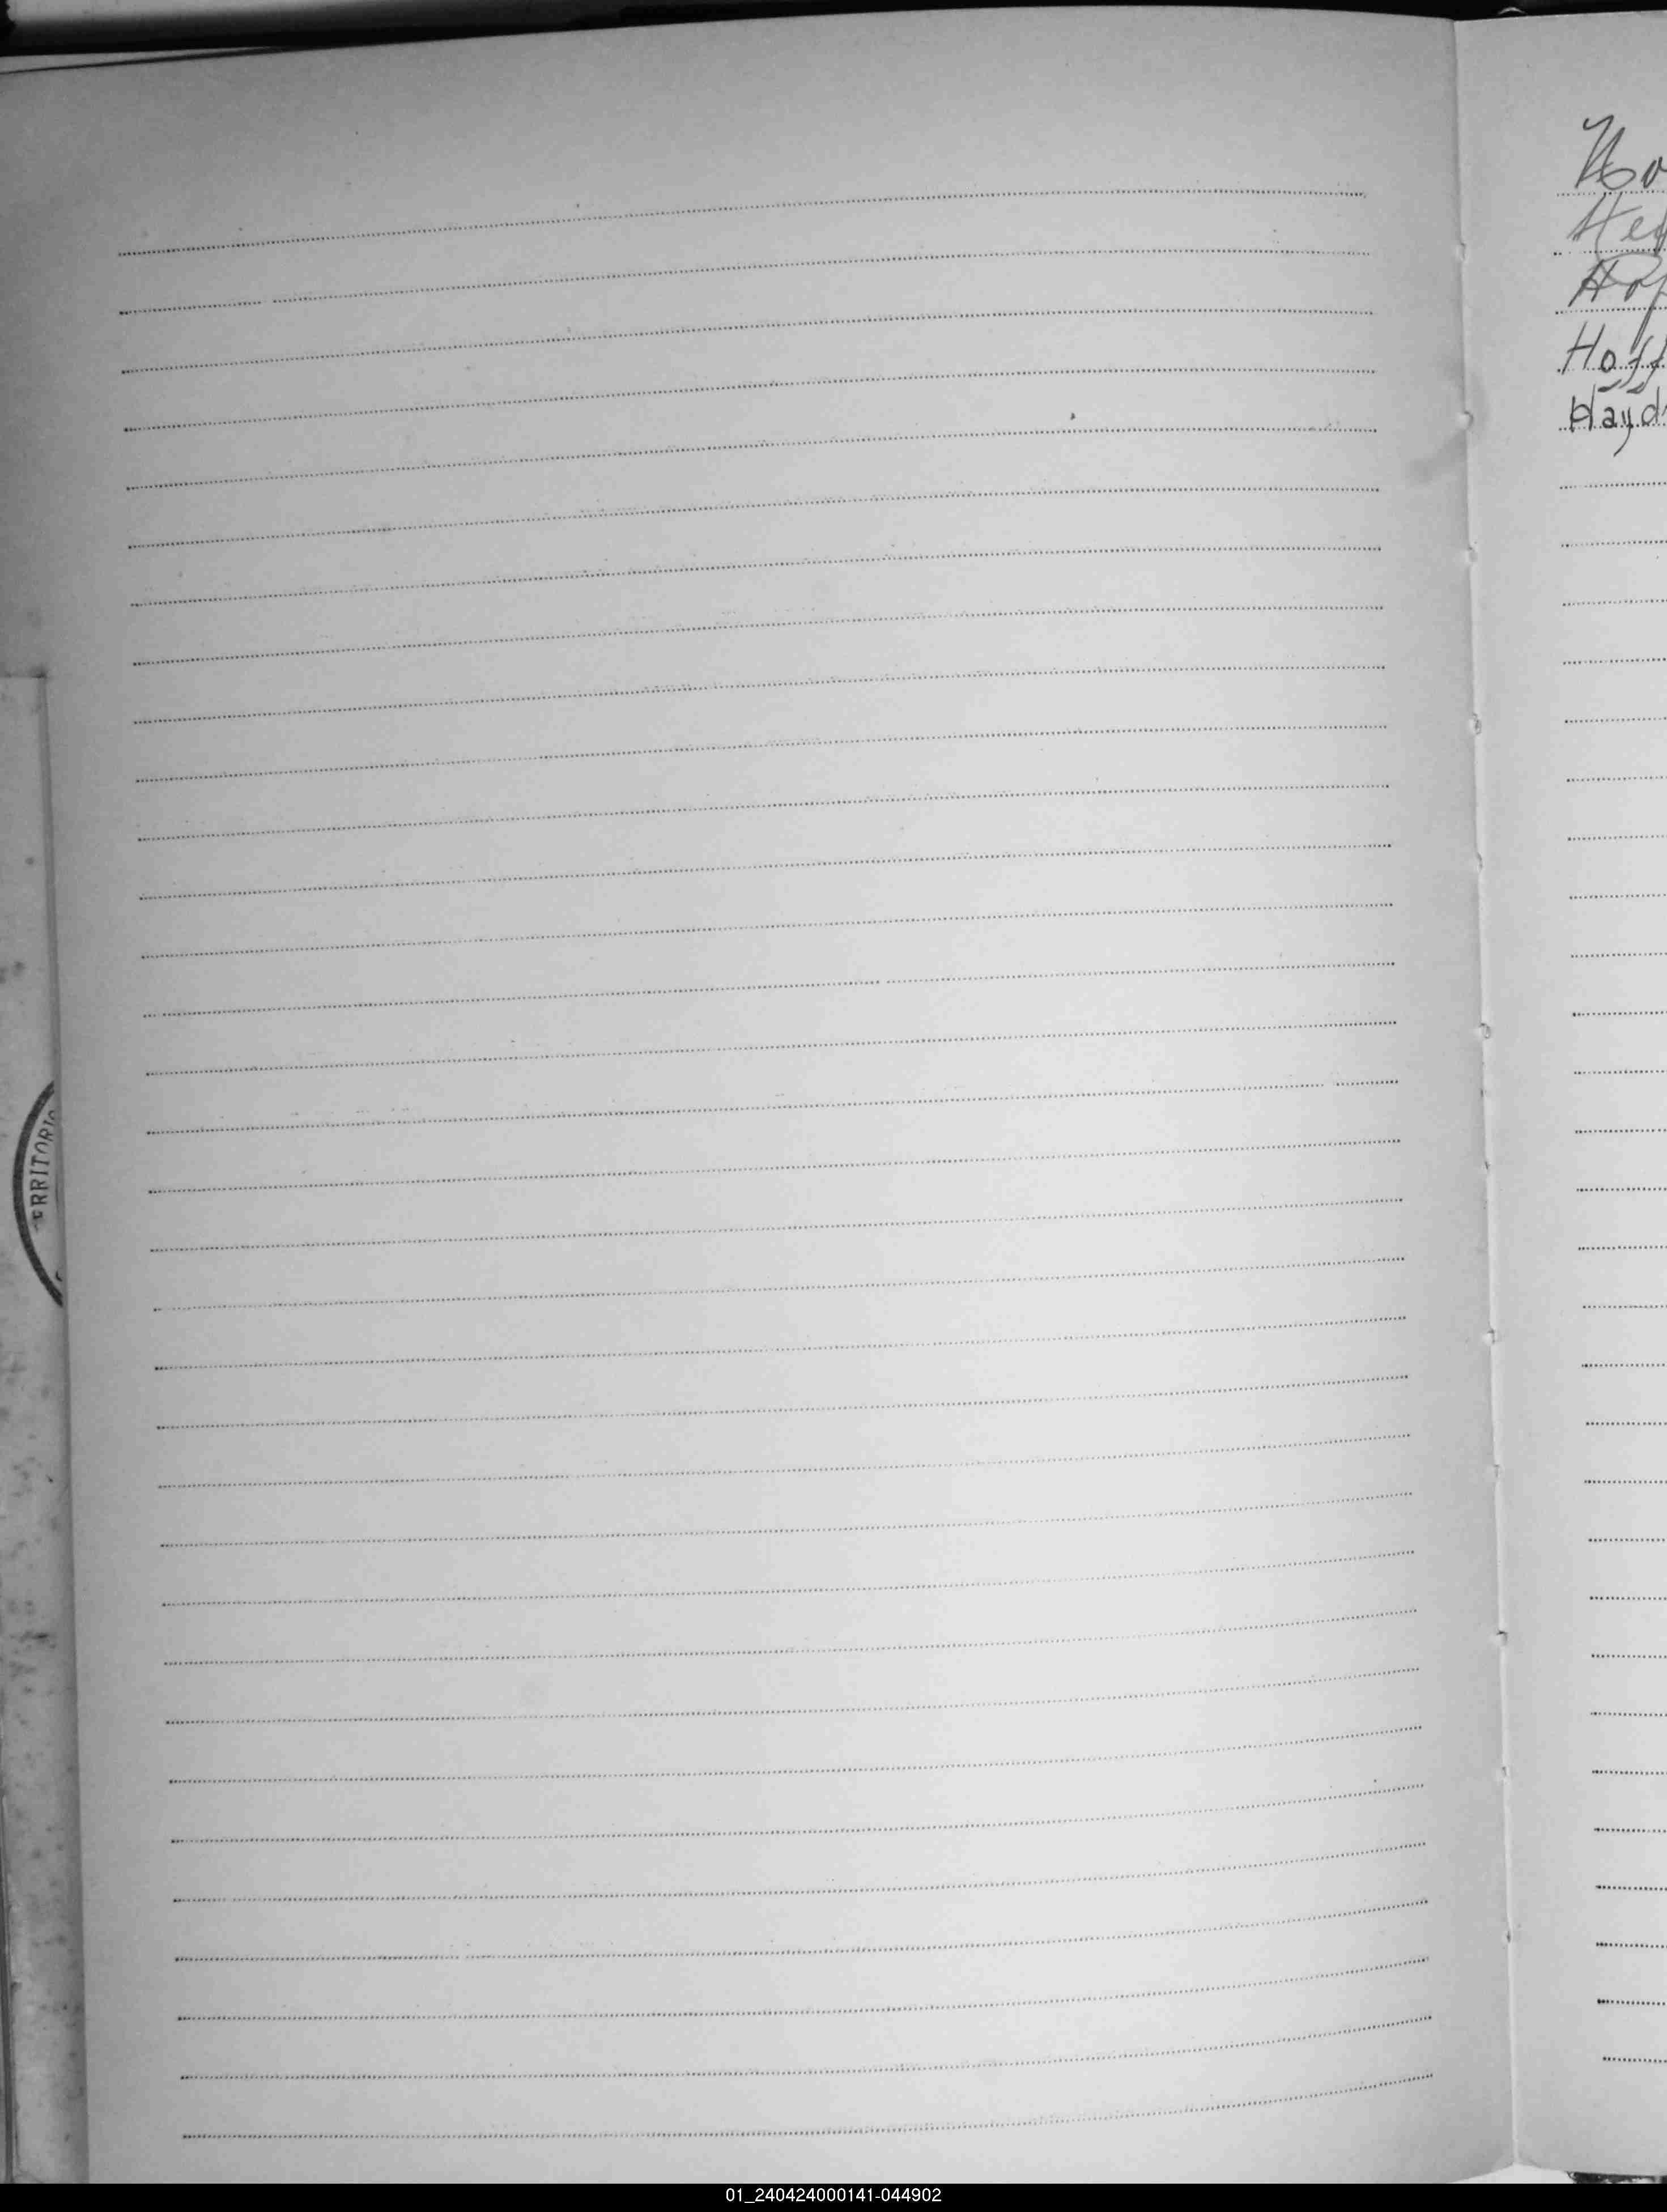 Ho
Hef
Hop
Hoff
Hayd
ERRITORIO
01_240424000141-044902